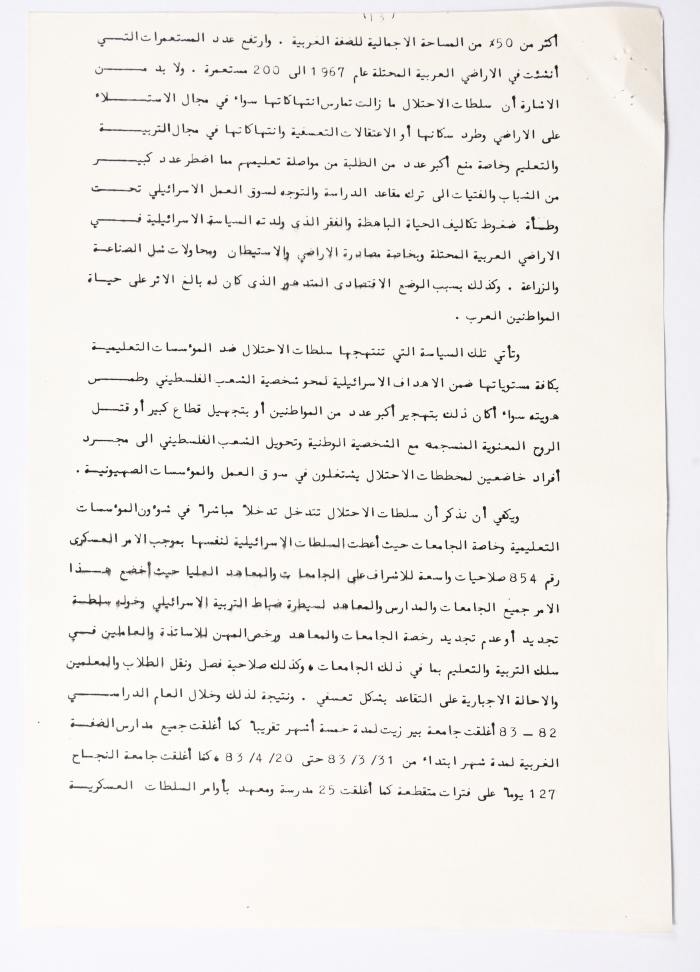 (13)
أكثر من 50٪ من المساحة الاجمالية للضفة الغربية . وارتفع عدد المستعمرات التـــي
أنشئت في الاراضي العربية المحتلة عام 1967 الى 200 مستعمرة . ولا بد مـــــن
الاشارة أن سلطات الاحتلال ما زالت تمارس انتهاكاتها سواء في مجال الاستــــلاء
على الاراضي وطرد سكانها أو الاعتقالات التعسفية وانتهاكاتها في مجال التربيـــة
والتعليم وخاصة منع أكبر عدد من الطلبة من مواصلة تعليمهم مما اضطر عدد كبيـــر
من الشباب والفتيات الى ترك مقاعد الدراسة والتوجه لسوق العمل الاسرائيلي تحـــت
وطـأة ضغوط تكاليف الحياة الباهظة والفقر الذى ولدته السياسة الاسرائيلية فــــي
الاراضي العربية المحتلة وبخاصة مصادرة الاراضي والاستيطان ومحاولات شل الصناعـة
والزراعة . وكذلك بسبب الوضع الاقتصادى المتدهور الذى كان له بالغ الاثر على حيـــاة
المواطنين العرب .
وتأتي تلك السياسة التي تنتهجها سلطات الاحتلال ضد المؤسسات التعليميـــة
بكافة مستوياتها ضمن الاهداف الاسرائيلية لمحو شخصية الشعب الفلسطيني وطمـــس
هويته سواء أكان ذلك بتهجير أكبر عدد من المواطنين أو بتجهيل قطاع كبير أو قتـــل
الروح المعنوية المنسجمه مع الشخصية الوطنية وتحويل الشعب الفلسطيني الى مجـــرد
أفراد خاضعين لمخططات الاحتلال يشتغلون في سوق العمل والمؤسسات الصهيونيـــة .
ويكفي أن نذكر أن سلطات الاحتلال تتدخل تدخلا مباشرا في شؤون المؤسسات
التعليمية وخاصة الجامعات حيث أعطت السلطات الاسرائيلية لنفسها بموجب الامر العسكرى
رقم 854 صلاحيات واسعة للاشراف على الجامعات والمعاهد العليا حيث أخضع هـــذا
الامر جميع الجامعات والمدارس والمعاهد لسيطرة ضباط التربية الاسرائيلي وخوله سلطـة
تجديد أو عدم تجديد رخصة الجامعات والمعاهد ورخص المهن للاساتذة والعاملين فـــي
سلك التربية والتعليم بما في ذلك الجامعات ، وكذلك صلاحية فصل ونقل الطلاب والمعلمين
والاحالة الاجبارية على التقاعد بشكل تعسفي . ونتيجة لذلك وخلال العام الدراســــي
82 – 83 أغلقت جامعة بير زيت لمدة خمسة أشهر تقريبا كما أغلقت جميع مدارس الضفـــة
الغربية لمدة شهر ابتداء من 31/3/83 حتى 20/4/83 ، كما أغلقت جامعة النجـــاح
127 يوما على فترات متقطعة كما أغلقت 25 مدرسة ومعهد بأوامر السلطات العسكريـــة